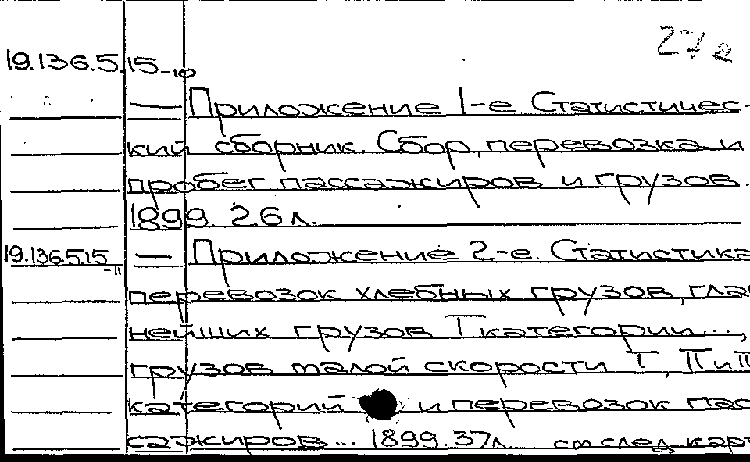 27 г
19.136.5.15-10
— Приложение 1-е. Статистичес-
кий сборник. Сбор, перевозка и
пробег пассажиров и грузов.
1899. 26 л.
19.136.5.15-11 — Приложение 2-е. Статистика
перевозок хлебных грузов, глав
нейших грузов I категории...,
грузов малой скорости I, II и II
категорий и перевозок пас
сажиров... 1899. 37 л. см след. карт